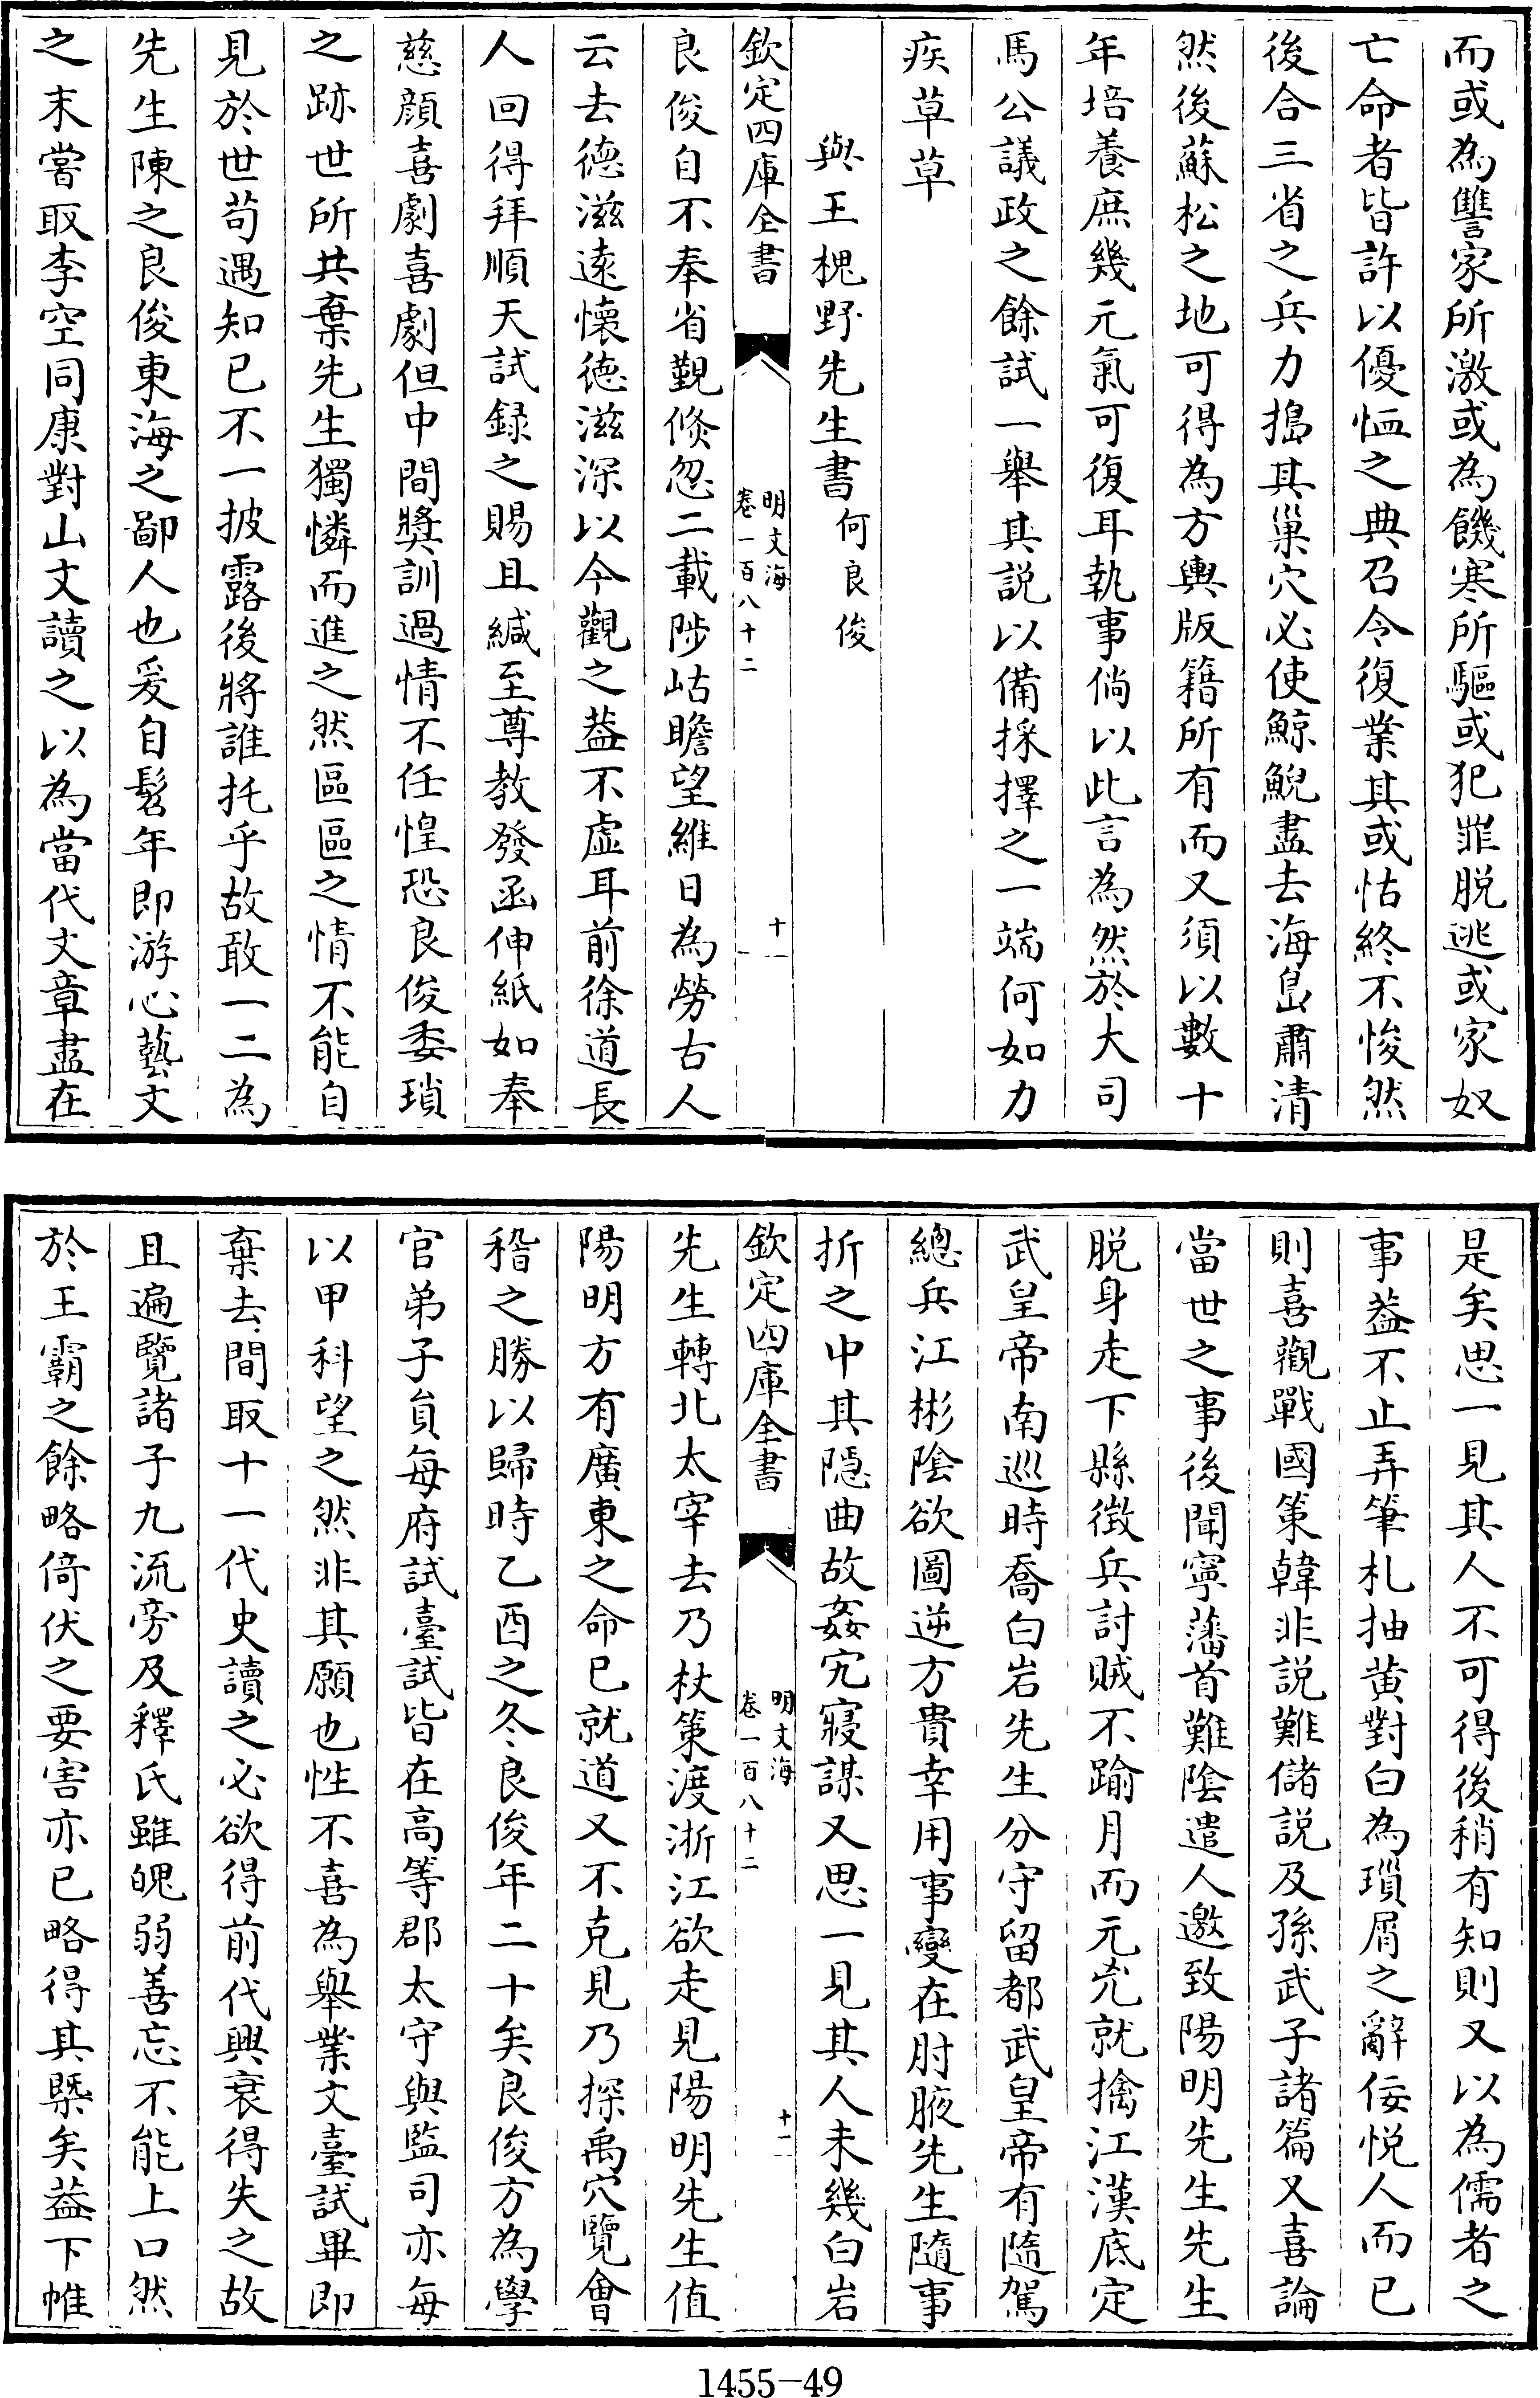 而或為讐家所激或為饑寒所驅或犯罪脱逃或家奴
亡命者皆許以優恤之典召令復業其或怙終不悛然
後合三省之兵力搗其巢穴必使鯨鯢盡去海島肅清
然後蘇松之地可得為方輿版籍所有而又須以數十
年培養庶幾元氣可復耳執事倘以此言為然於大司
馬公議政之餘試一舉其説以備採擇之一端何如力
疾草草
與王槐野先生書何良俊
欽定四庫全書
明文海
卷一百八十二
十一
良俊自不奉省覲倐忽二載陟岵瞻望維日為勞古人
云去德滋遠懷德滋深以今觀之葢不虚耳前徐道長
人回得拜順天試録之賜且緘至尊教發函伸紙如奉
慈顔喜劇喜劇但中間奬訓過情不任惶恐良俊委瑣
之跡世所共棄先生獨憐而進之然區區之情不能自
見於世苟遇知已不一披露後將誰托乎故敢一二為
先生陳之良俊東海之鄙人也爰自髫年即游心藝文
之末嘗取李空同康對山文讀之以為當代文章盡在
是矣思一見其人不可得後稍有知則又以為儒者之
事葢不止弄筆札抽黄對白為瑣屑之辭佞悦人而已
則喜觀戰國策韓非説難儲説及孫武子諸篇又喜論
當世之事後聞寧藩首難隂遣人邀致陽明先生先生
脱身走下縣徵兵討賊不踰月而元兇就擒江漢底定
武皇帝南巡時喬白岩先生分守留都武皇帝有隨駕
總兵江彬隂欲圖逆方貴幸用事變在肘腋先生隨事
折之中其隠曲故姦宄寢謀又思一見其人未幾白岩
欽定四庫全書
明文海
卷一百八十二
十一
先生轉北太宰去乃杖策渡浙江欲走見陽明先生值
陽明方有廣東之命已就道又不克見乃探禹穴覽會
稽之勝以歸時乙酉之冬良俊年二十矣良俊方為學
官弟子員每府試臺試皆在高等郡太守與監司亦每
以甲科望之然非其願也性不喜為舉業文臺試畢即
棄去間取十一代史讀之必欲得前代興衰得失之故
且遍覽諸子九流旁及釋氏雖媿弱善忘不能上口然
於王霸之餘略倚伏之要害亦已略得其槩矣葢下帷
1455-49